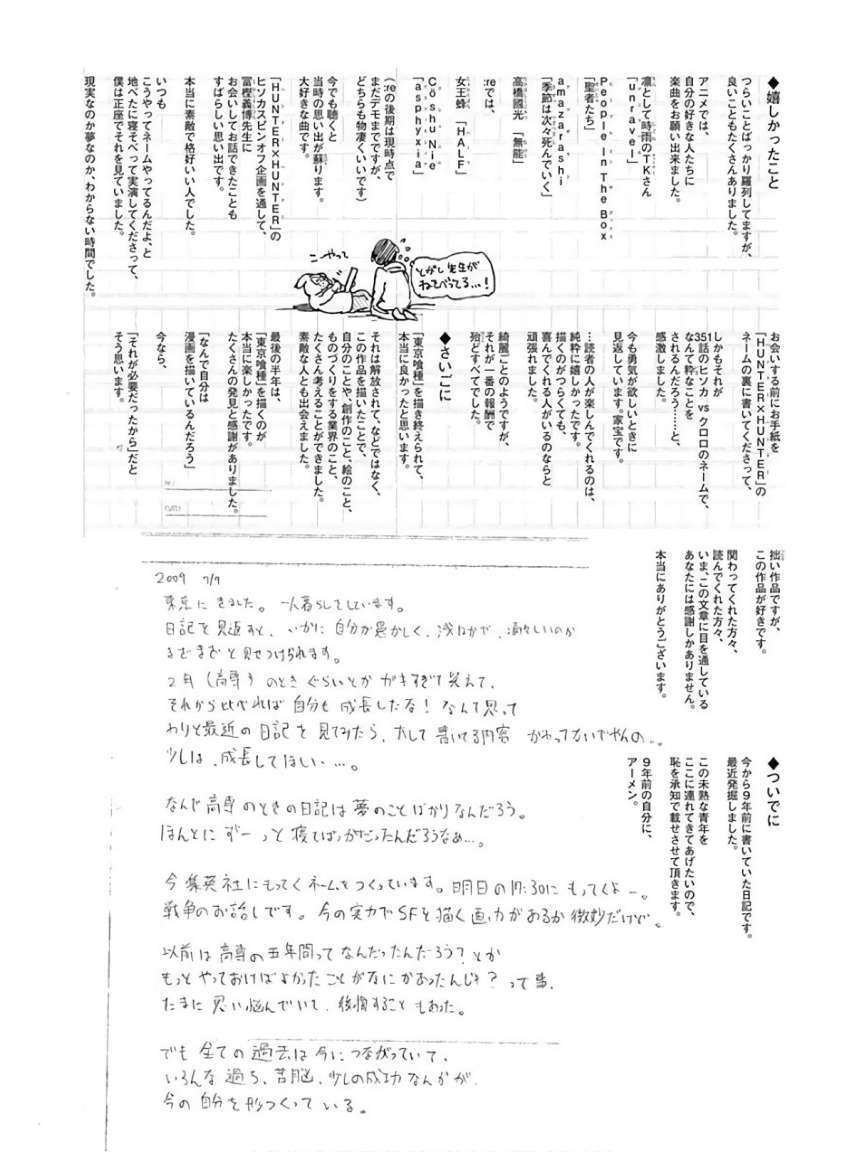 ◆嬉しかったこと
つらいことばっかり羅列してますが、
良いこともたくさんありました。
アニメでは、
自分の好きな人たちに
楽曲をお願い出来ました。
凛として時雨のTKさん
「unravel」
People In The Box
「聖者たち」
amazarashi
「季節は次々死んでいく」
高橋國光 「無能」
:reでは、
女王蜂 「HALF」
Cö shu Nie
「asphyxia」
(:reの後期は現時点で
まだデモまでですが、
どちらも物凄くいいです)
今でも聴くと
当時の思い出が蘇ります。
大好きな曲です。
「HUNTER×HUNTER」の
ヒソカスピンオフ企画を通して、
冨樫義博先生に
お会いしてお話できたことも
すばらしい思い出です。
本当に素敵で格好いい人でした。
いつも
こうやってネームやってるんだよ、と
地べたに寝そべって実演してくださって、
僕は正座でそれを見ていました。
現実なのか夢なのか、わからない時間でした。
とがし先生が
ねそべってる…!
こーやって
お会いする前にお手紙を
「HUNTER×HUNTER」の
ネームの裏に書いてくださって、
しかもそれが
351話のヒソカ vs クロロのネームで、
なんて粋なことを
されるんだろう……と、
感激しました。
今も勇気が欲しいときに
見返しています。家宝です。
…読者の人が楽しんでくれるのは、
純粋に嬉しかったです。
描くのがつらくても、
喜んでくれる人がいるのならと
頑張れました。
綺麗ごとのようですが、
それが一番の報酬で
殆どすべてでした。
◆さいごに
「東京喰種」を描き終えられて、
本当に良かったと思います。
それは解放されて、などではなく、
この作品を描いたことで、
自分のことや、創作のこと、絵のこと、
ものづくりをする業界のこと、
たくさん考えることができました。
素敵な人とも出会えました。
最後の半年は、
「東京喰種」を描くのが
本当に楽しかったです。
たくさんの発見と感謝がありました。
「なんで自分は
漫画を描いているんだろう」
今なら、
「それが必要だったから」だと
そう思います。
拙い作品ですが、
この作品が好きです。
関わってくれた方々、
読んでくれた方々、
いま、この文章に目を通している
あなたには感謝しかありません。
本当にありがとうございます。
◆ついでに
今から9年前に書いていた日記です。
最近発掘しました。
この未熟な青年を
ここに連れてきてあげたいので、
恥を承知で載せさせて頂きます。
9年前の自分に、
アーメン。
2009 7/7
東京にきました。一人暮らしをしています。
日記を見返すと、いかに自分が愚かしく、浅はかで、滴々しいのか
まざまざと見せつけられます。
2月(高専)のときぐらいとかガキすぎて笑えて、
それから比べれば自分も成長したな!なんて思って
わりと最近の日記を見てみたら、大して書いてる内容かわってないでやんの…。
少しは、成長してほしい…。
なんで高専のときの日記は夢のことばかりなんだろう。
ほんとにずーっと寝てばっかだったんだろうなぁ…。
今集英社にもってくネームをつくっています。明日の17:30にもってくよー。
戦争のお話しです。今の実力でSFを描く画力があるか微妙だけど。
以前は高専の五年間ってなんだったんだろう?とか
もっとやっておけばよかったことがなにかあったんじゃ?って事、
たまに思い悩んでいて、後悔することもあった。
でも全ての過去は今につながっていて、
いろんな過ち、苦悩、少しの成功なんかが、
今の自分を形つくっている。